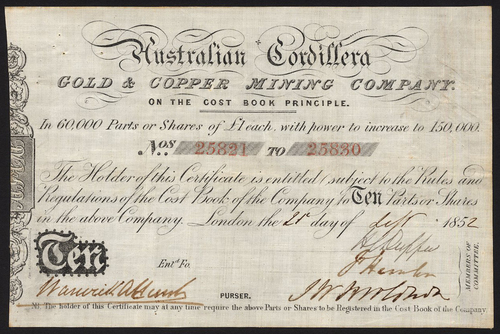 Australian Cordillera
GOLD & COPPER MINING COMPANY.
ON THE COST BOOK PRINCIPLE.
In 60,000 Parts or Shares of £1 each, with power to increase to 150,000.
Nos. 25821 TO 25830
The Holder of this Certificate is entitled (subject to the Rules and
Regulations of the Cost Book of the Company to Ten Parts or Shares
in the above Company. London the 21 day of 1852
Ten
Entd. Fo.
PURSER.
MEMBERS OF
COMMITTEE.
NB. The holder of this Certificate may at any time require the above Parts or Shares to be Registered in the Cost Book of the Company